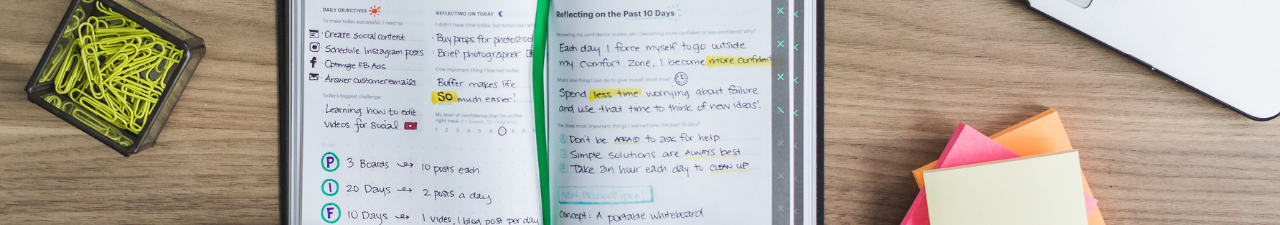 DAILY OBJECTIVES
To make today successful, I need to:
· Create social content
· Schedule Instagram posts
· Optimize FB Ads
· Answer customer emails
Today's biggest challenge
Learning how to edit
videos for social
P 3 Boards → 10 posts each
I 20 Days → 2 posts a day
F 10 Days → 1 video, 1 blog post per day
REFLECTING ON TODAY
· Buy props for photoshoot
· Brief photographer
One important thing I learned today
Buffer makes life
SO much easier!
My level of confidence that I'm on the
1 2 3 4 5 6 7 8 9
Reflecting on the Past 10 Days
Each day I force myself to go outside
my comfort zone, I become more confident
What's one thing I can do to give myself more time?
Spend less time worrying about failure
and use that time to think of new ideas!
The three most important things I learned over the past 10 days?
1 Don't be AFRAID to ask for help
2 Simple solutions are ALWAYS best
3 Take an hour each day to CLEAN UP
NEW PRODUCT IDEA!
Concept: A portable whiteboard